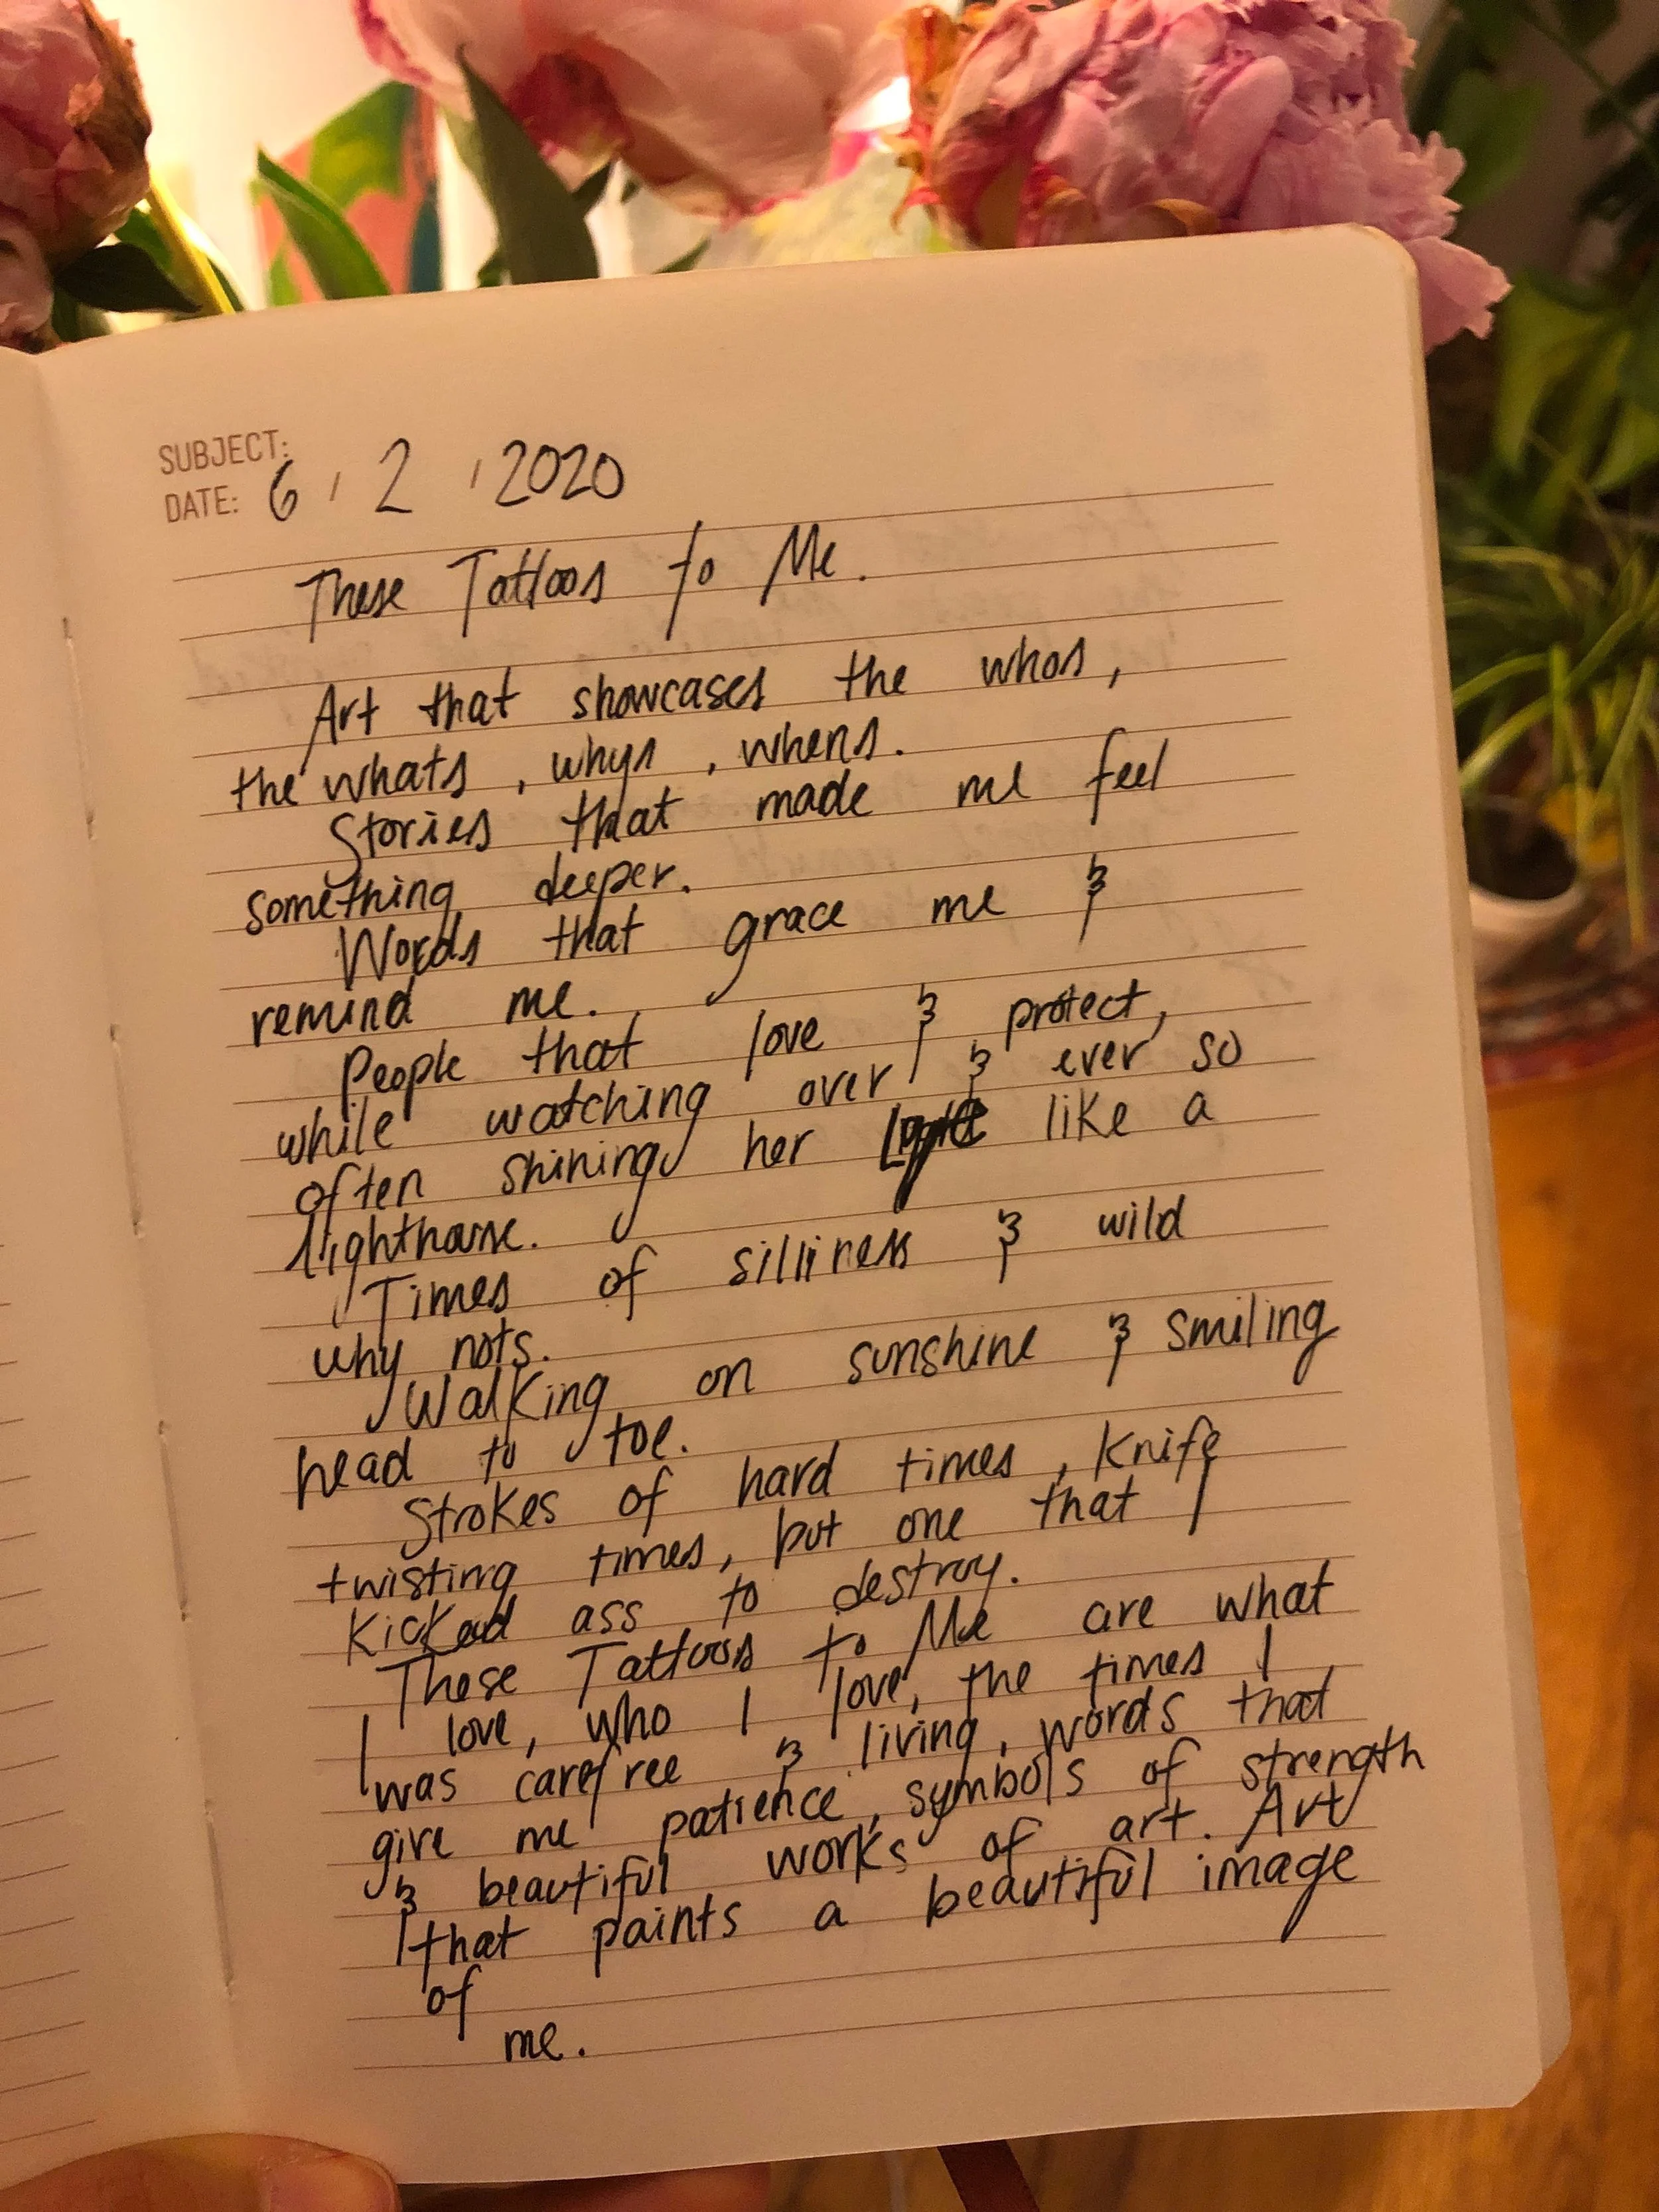 SUBJECT:
DATE: 6 / 2 / 2020
These Tattoos to Me.
Art that showcases the whos,
the whats, whys, whens.
Stories that made me feel
something deeper.
Words that grace me &
remind me.
People that love & protect,
while watching over & ever so
often shining her light like a
lighthouse.
Times of silliness & wild
why nots.
Walking on sunshine & smiling
head to toe.
Strokes of hard times, knife
twisting times, but one that I
kicked ass to destroy.
These Tattoos to Me are what
I love, who I love, the times I
was carefree & living, words that
give me patience, symbols of strength
& beautiful works of art. Art
that paints a beautiful image
of
me.